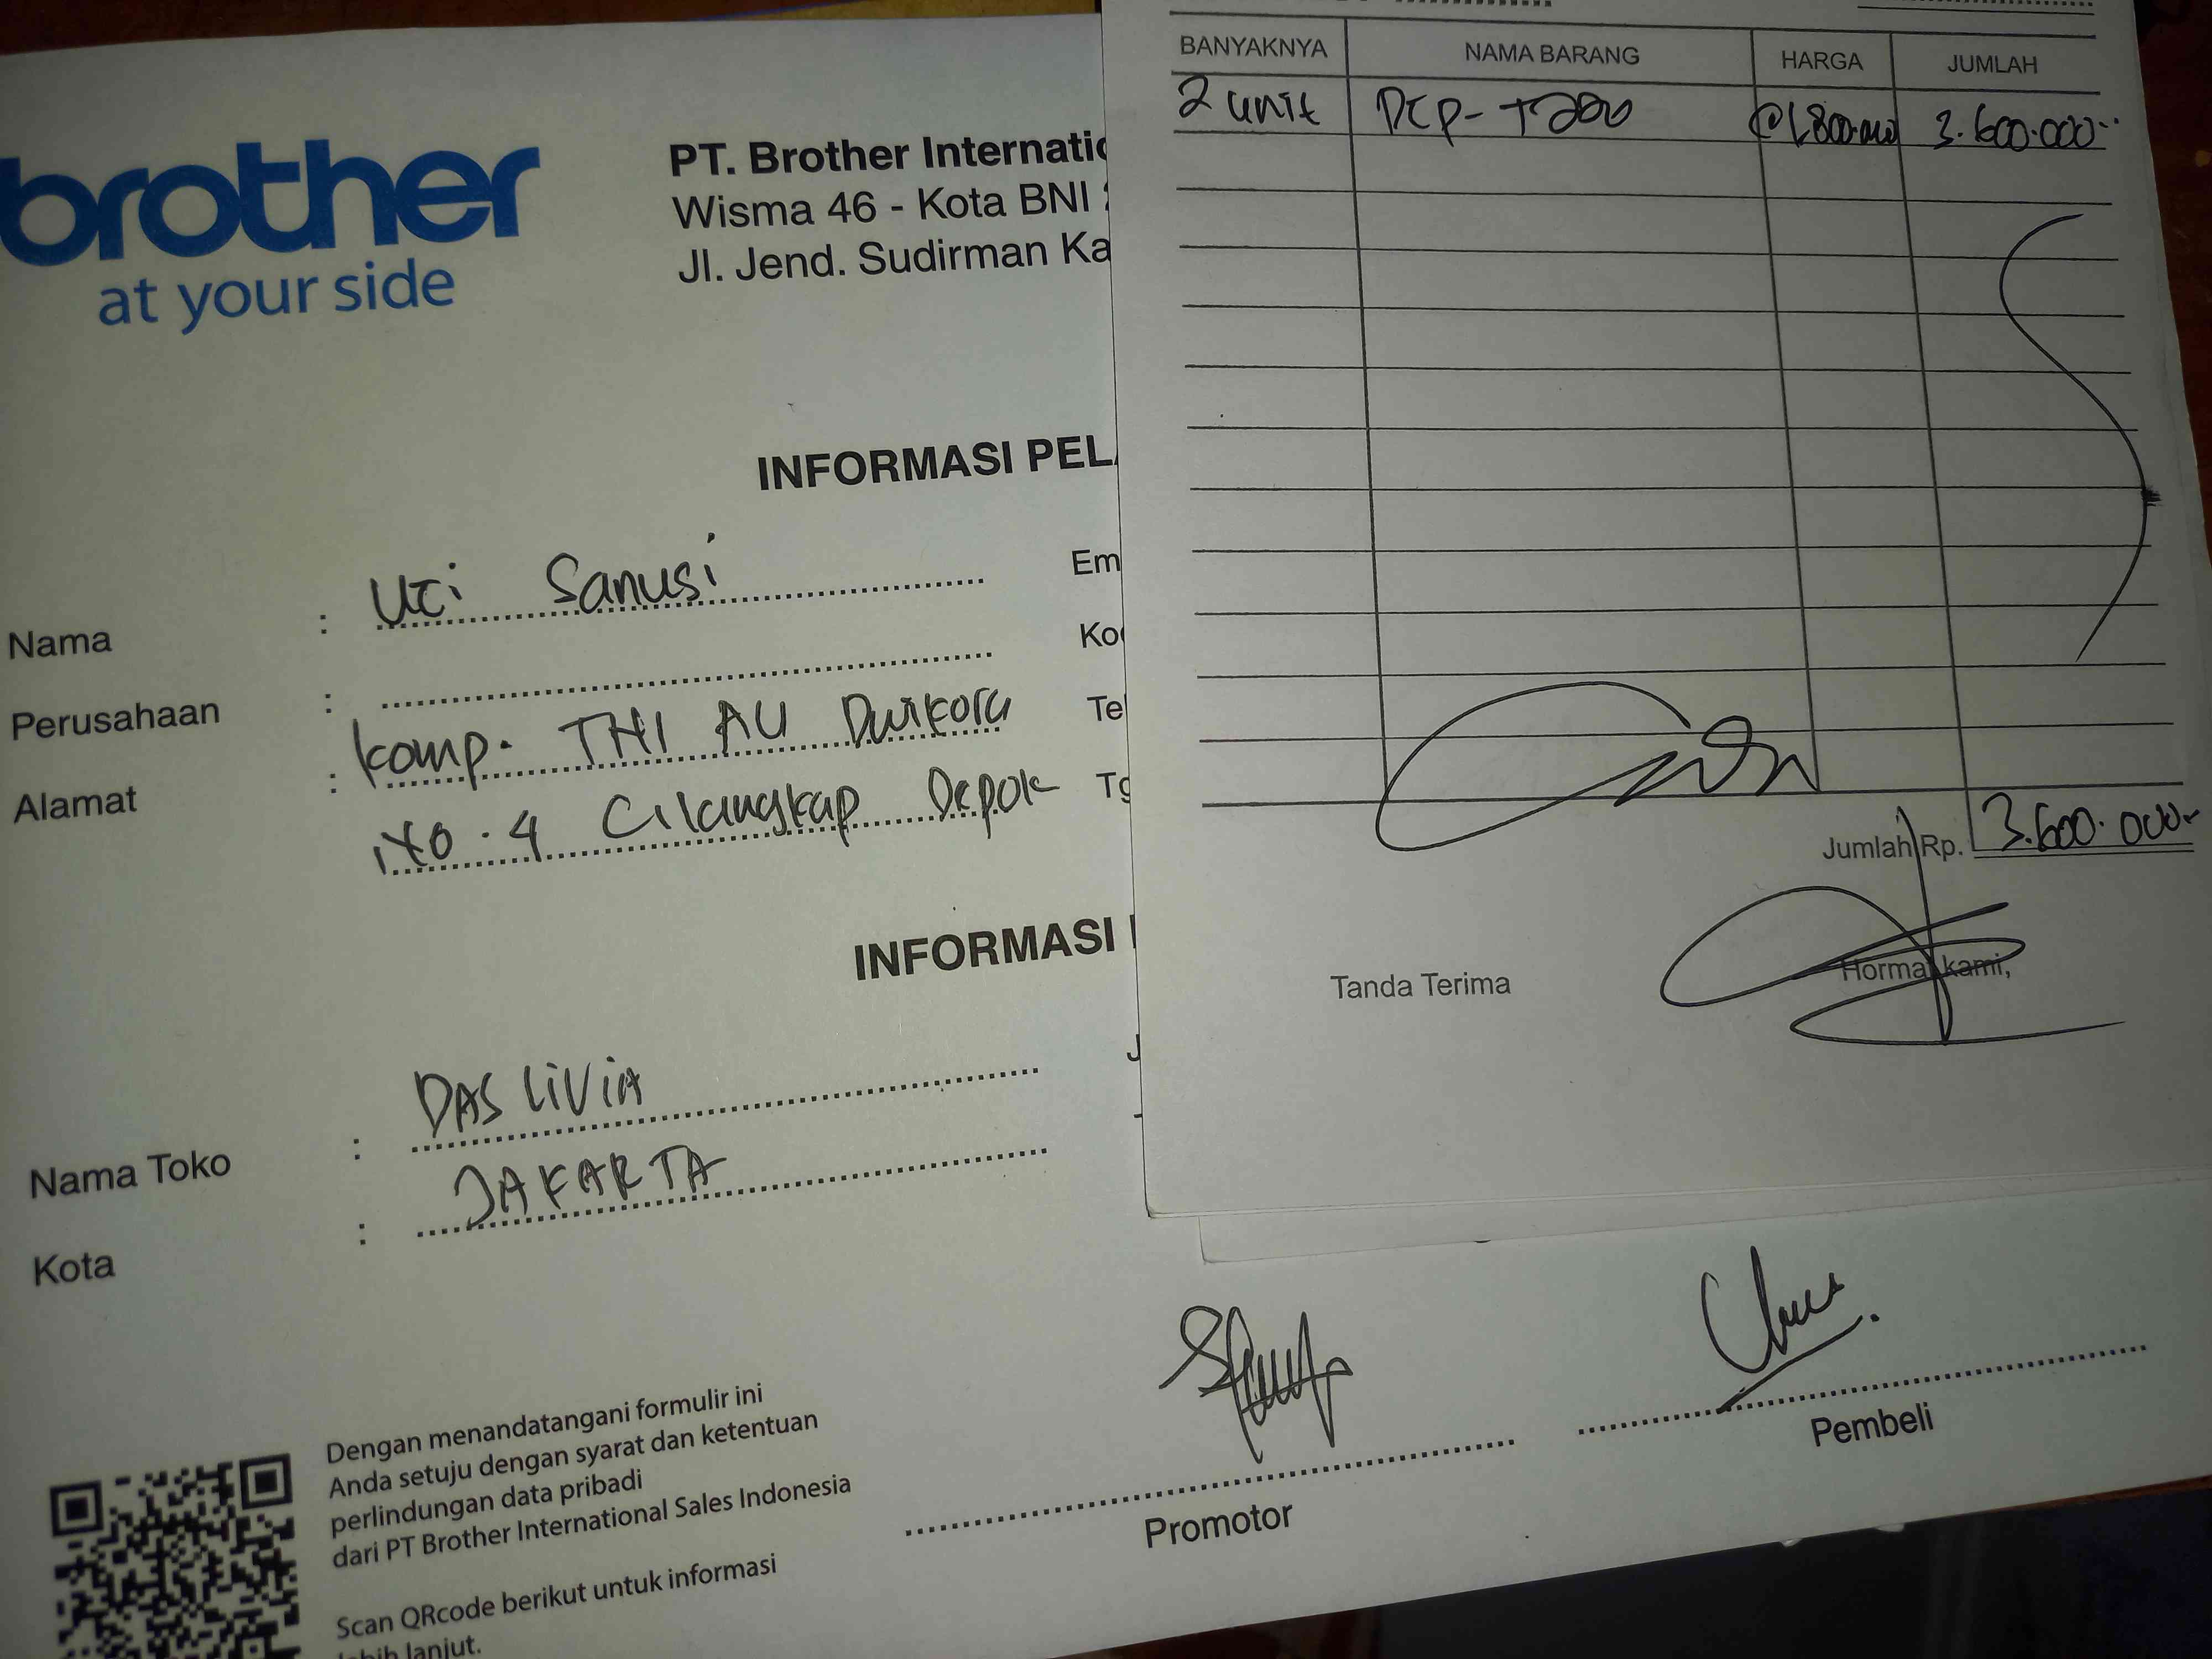 brother
at your side
PT. Brother Internatio
Wisma 46 - Kota BNI
Jl. Jend. Sudirman Ka
INFORMASI PEL
Nama : Uci Sanusi
Em
Perusahaan :
Ko
Alamat : Komp. TNI AU Dwikora
Te
No. 4 Cilangkap Depok
Tg
INFORMASI
Nama Toko : DAS LIVIA
J
Kota : JAKARTA
Dengan menandatangani formulir ini
Anda setuju dengan syarat dan ketentuan
perlindungan data pribadi
dari PT Brother International Sales Indonesia
Scan QRcode berikut untuk informasi
lebih lanjut.
Promotor
Pembeli
BANYAKNYA NAMA BARANG HARGA JUMLAH
2 unit DCP-T200 @1.800.000 3.600.000-
Jumlah Rp. 3.600.000-
Tanda Terima
Hormat kami,